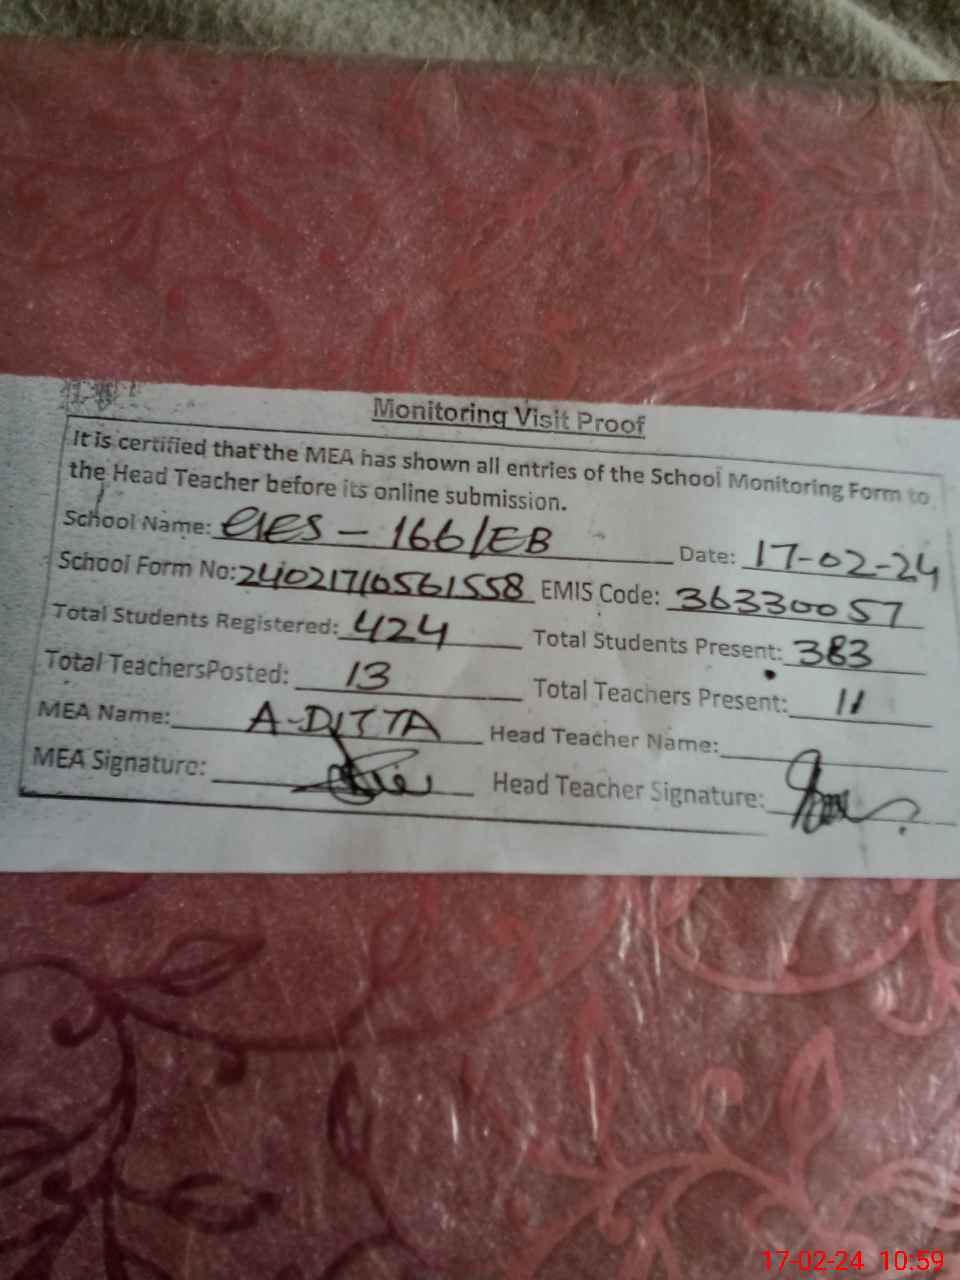 Monitoring Visit Proof
It is certified that the MEA has shown all entries of the School Monitoring Form to
the Head Teacher before its online submission.
School Name: GES - 166/EB Date: 17-02-24
School Form No: 24021710561558 EMIS Code: 36330057
Total Students Registered: 424 Total Students Present: 383
Total TeachersPosted: 13 Total Teachers Present: 11
MEA Name: A-DITTA Head Teacher Name:
MEA Signature: Head Teacher Signature:
17-02-24 10:59